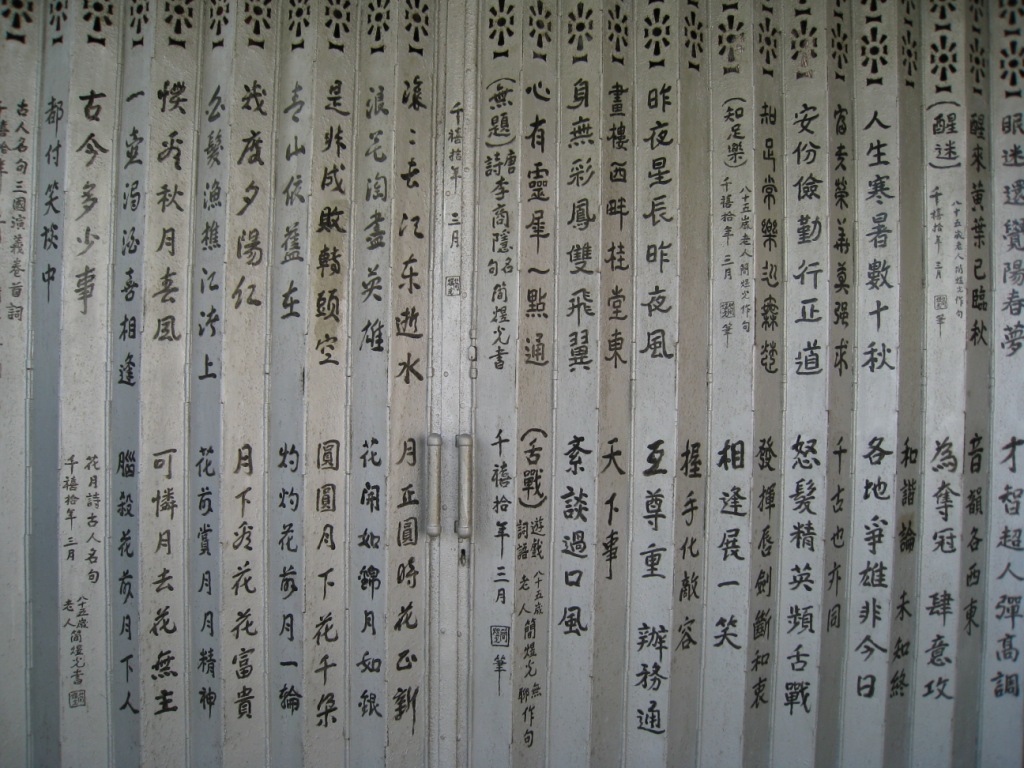 眼迷還覺陽春夢
醒來黃葉已臨秋
(醒迷)
八十五歲老人簡光作句
千禧拾年 三月 筆
人生寒暑數十秋
富貴榮華莫强求
安份儉勤行正道
知足常樂
(知足樂)
八十五歲老人簡光作句
千禧拾年 三月 筆
昨夜星辰昨夜風
畫樓西畔桂堂東
身無彩鳳雙飛翼
心有靈犀一點通
(無題)唐詩李商隱名句簡光書
千禧拾年 三月
滾〻长江东逝水
浪花淘盡英雄
是非成敗轉頭空
青山依舊在
幾度夕陽红
白髮漁樵江渚上
慣看秋月春風
一壺濁酒喜相逢
古今多少事
都付笑談中
古人名句三國演義卷首詞
千禧拾年 三月
才智超人彈高調
音韻各西東
為奪冠 肆意攻
和諧論 未知終
各地爭雄非今日
千古也亦同
怒髮精英頻舌戰
發揮唇劍斷和衷
相逢展一笑
握手化敵容
互尊重 辦務通
天下事
紊談過口風
(舌戰)遊戲詞語八十五歲老人簡光無聊作句
千禧拾年三月 筆
月正圓時花正新
花開如錦月如銀
圓圓月下花千朵
灼灼花前月一輪
月下看花花富貴
花前賞月月精神
可憐月去花無主
腦殺花前月下人
花月詩古人名句
千禧拾年 三月
八十五歲老人簡光書